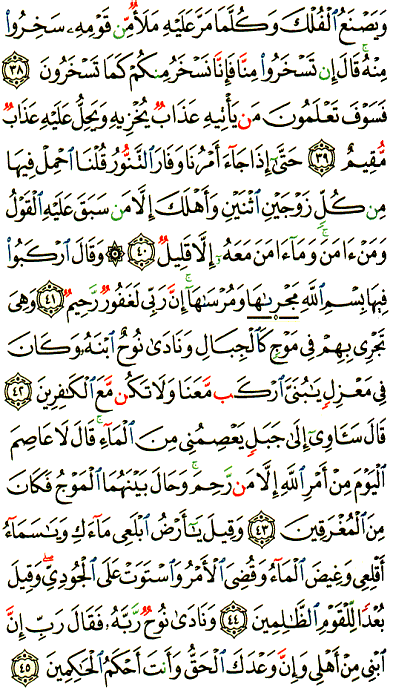 وَيَصْنَعُ ٱلْفُلْكَ وَكُلَّمَا مَرَّ عَلَيْهِ مَلَأٌ مِّن قَوْمِهِۦ سَخِرُوا۟
مِنْهُ ۚ قَالَ إِن تَسْخَرُوا۟ مِنَّا فَإِنَّا نَسْخَرُ مِنكُمْ كَمَا تَسْخَرُونَ ٣٨
فَسَوْفَ تَعْلَمُونَ مَن يَأْتِيهِ عَذَابٌ يُخْزِيهِ وَيَحِلُّ عَلَيْهِ عَذَابٌ
مُّقِيمٌ ٣٩ حَتَّىٰٓ إِذَا جَآءَ أَمْرُنَا وَفَارَ ٱلتَّنُّورُ قُلْنَا ٱحْمِلْ فِيهَا
مِن كُلٍّ زَوْجَيْنِ ٱثْنَيْنِ وَأَهْلَكَ إِلَّا مَن سَبَقَ عَلَيْهِ ٱلْقَوْلُ
وَمَنْ ءَامَنَ ۚ وَمَآ ءَامَنَ مَعَهُۥٓ إِلَّا قَلِيلٌ ٤٠ ۞ وَقَالَ ٱرْكَبُوا۟
فِيهَا بِسْمِ ٱللَّهِ مَجْر۪ىٰهَا وَمُرْسَىٰهَآ ۚ إِنَّ رَبِّى لَغَفُورٌ رَّحِيمٌ ٤١ وَهِىَ
تَجْرِى بِهِمْ فِى مَوْجٍ كَٱلْجِبَالِ وَنَادَىٰ نُوحٌ ٱبْنَهُۥ وَكَانَ
فِى مَعْزِلٍ يَٰبُنَىَّ ٱرْكَب مَّعَنَا وَلَا تَكُن مَّعَ ٱلْكَٰفِرِينَ ٤٢
قَالَ سَـَٔاوِىٓ إِلَىٰ جَبَلٍ يَعْصِمُنِى مِنَ ٱلْمَآءِ ۚ قَالَ لَا عَاصِمَ
ٱلْيَوْمَ مِنْ أَمْرِ ٱللَّهِ إِلَّا مَن رَّحِمَ ۚ وَحَالَ بَيْنَهُمَا ٱلْمَوْجُ فَكَانَ
مِنَ ٱلْمُغْرَقِينَ ٤٣ وَقِيلَ يَٰٓأَرْضُ ٱبْلَعِى مَآءَكِ وَيَٰسَمَآءُ
أَقْلِعِى وَغِيضَ ٱلْمَآءُ وَقُضِىَ ٱلْأَمْرُ وَٱسْتَوَتْ عَلَى ٱلْجُودِىِّ ۖ وَقِيلَ
بُعْدًا لِّلْقَوْمِ ٱلظَّٰلِمِينَ ٤٤ وَنَادَىٰ نُوحٌ رَّبَّهُۥ فَقَالَ رَبِّ إِنَّ
ٱبْنِى مِنْ أَهْلِى وَإِنَّ وَعْدَكَ ٱلْحَقُّ وَأَنتَ أَحْكَمُ ٱلْحَٰكِمِينَ ٤٥